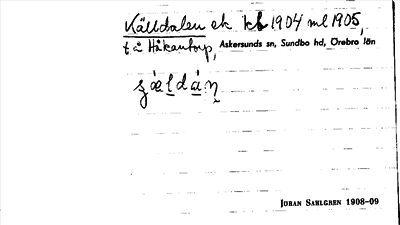 Källdalen ek kb 1904 ml 1905,
t å Håkantorp, Askersunds sn, Sundbo hd, Örebro län
JÖRAN SAHLGREN 1908-09